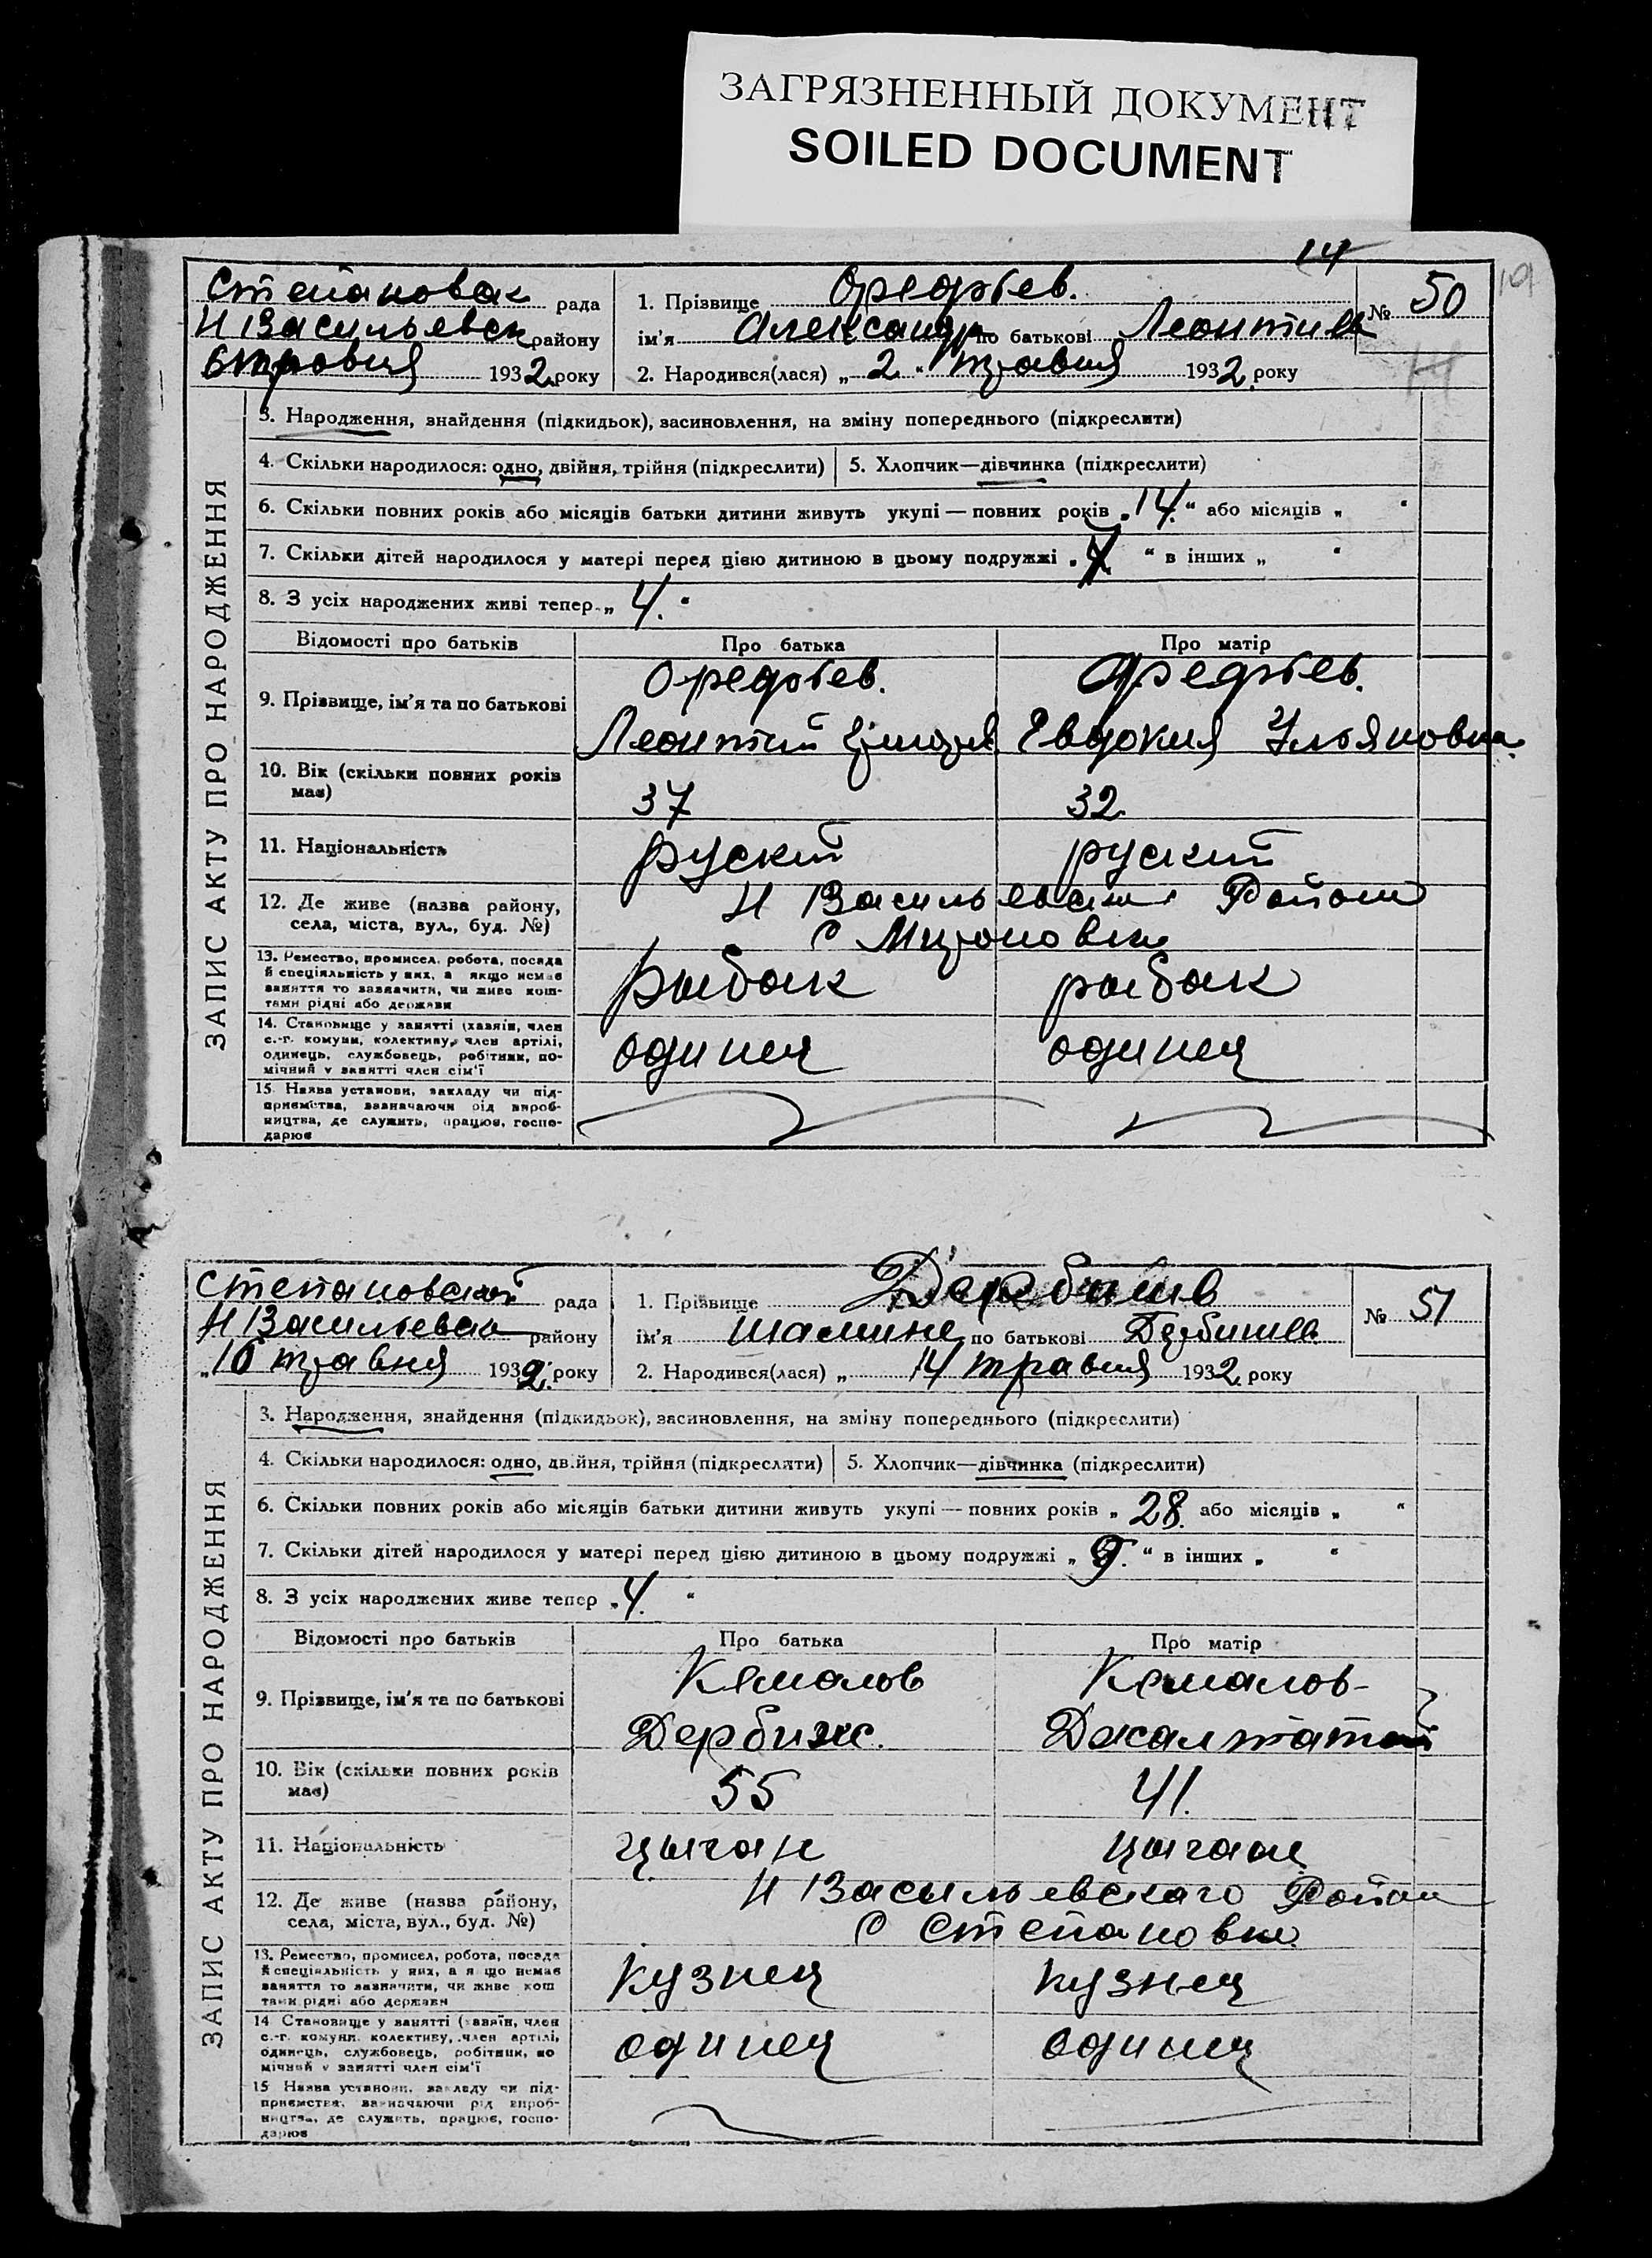 ЗАГРЯЗНЕННЫЙ ДОКУМЕНТ
SOILED DOCUMENT
14
19
Степановск рада
Н Васильевск району
6 травня 1932 року
1. Прізвище
ім'я Александр по батькові Леонтиев
2. Народився(лася) „ 2 “ травня 1932 року
№ 50
ЗАПИС АКТУ ПРО НАРОДЖЕННЯ
3. Народження, знайдення (підкидьок), засиновлення, на зміну попереднього (підкреслити)
4. Скільки народилося: одно, двійня, трійня (підкреслити)
5. Хлопчик—дівчинка (підкреслити)
6. Скільки повних років або місяців батьки дитини живуть укупі — повних років „ 14. “ або місяців „ “
7. Скільки дітей народилося у матері перед цією дитиною в цьому подружжі „ “ в інших „ “
8. З усіх народжених живі тепер „ 4. “
Відомості про батьків Про батька Про матір
9. Прізвище, ім'я та по батькові
Леонтий Евдокия Ульяновна
10. Вік (скільки повних років має) 37 32
11. Національність руский руский
12. Де живе (назва району, села, міста, вул., буд. №) Н Васильевский Район
С Мироновка
13. Ремество, промисел, робота, посада й спеціяльність у них, а якщо немає заняття то зазначити, чи живе коштами рідні або держави рыбак рыбак
14. Становище у занятті (хазяїн, член с.-г. комуни, колективу, член артілі, одинець, службовець, робітник, помічний у занятті член сім'ї одинец одинец
15. Назва установи, закладу чи підприємства, зазначаючи рід виробництва, де служить, працює, господарює
Степановской рада
Н Васильевско району
„16 травня 1932 року
1. Прізвище Дербишев
ім'я по батькові Дербишев
2. Народився(лася) „ 14 травня 1932 року
№ 51
ЗАПИС АКТУ ПРО НАРОДЖЕННЯ
3. Народження, знайдення (підкидьок), засиновлення, на зміну попереднього (підкреслити)
4. Скільки народилося: одно, двійня, трійня (підкреслити)
5. Хлопчик—дівчинка (підкреслити)
6. Скільки повних років або місяців батьки дитини живуть укупі — повних років „ 28. або місяців „ “
7. Скільки дітей народилося у матері перед цією дитиною в цьому подружжі „ 9. “ в інших „ “
8. З усіх народжених живе тепер „ 4. “
Відомості про батьків Про батька Про матір
9. Прізвище, ім'я та по батькові Кемалов Кемалов
Дербиж.
10. Вік (скільки повних років має) 55 41.
11. Національність цыган цыган
12. Де живе (назва району, села, міста, вул., буд. №) Н Васильевскаго Район
С Степановка
13. Ремество, промисел, робота, посада й спеціяльність у них, а якщо немає заняття то зазначити, чи живе коштами рідні або держави кузнец кузнец
14 Становище у занятті (хазяїн, член с.-г. комуни, колективу, член артілі, одинець, службовець, робітник, помічний у занятті член сім'ї одинец одинец
15 Назва установи, закладу чи підприємства, зазначаючи рід виробництва, де служить, працює, господарює